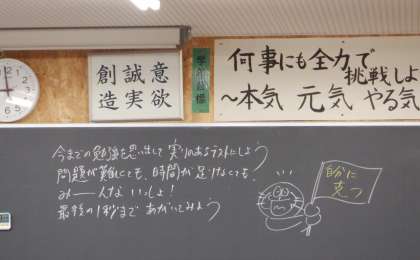 意欲
誠実
創造
学級目標
何事にも全力で
挑戦しよ
～本気 元気 やる気
今までの勉強を思い出して 実りのあるテストにしよう
問題が難しくても、時間が足りなくても、
みーんな いっしょ!
最後の1秒まで あがいてみよう
自分に
克つ